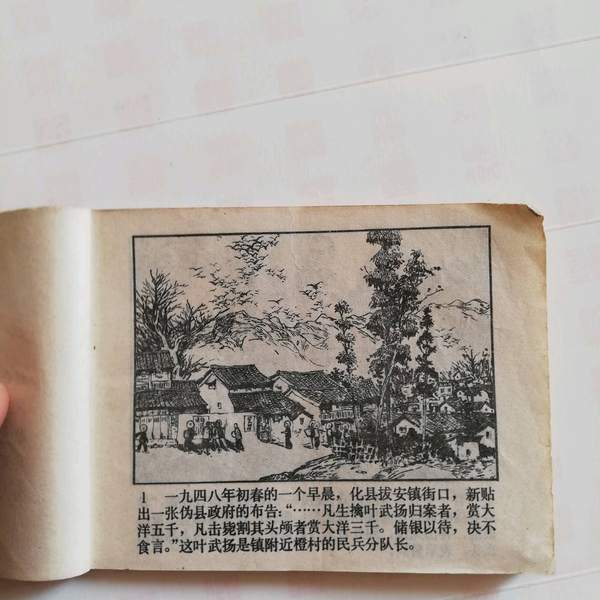 1 一九四八年初春的一个早晨，化县拔安镇街口，新贴
出一张伪县政府的布告：“……凡生擒叶武扬归案者，赏大
洋五千，凡击毙割其头颅者赏大洋三千。储银以待，决不
食言。”这叶武扬是镇附近橙村的民兵分队长。